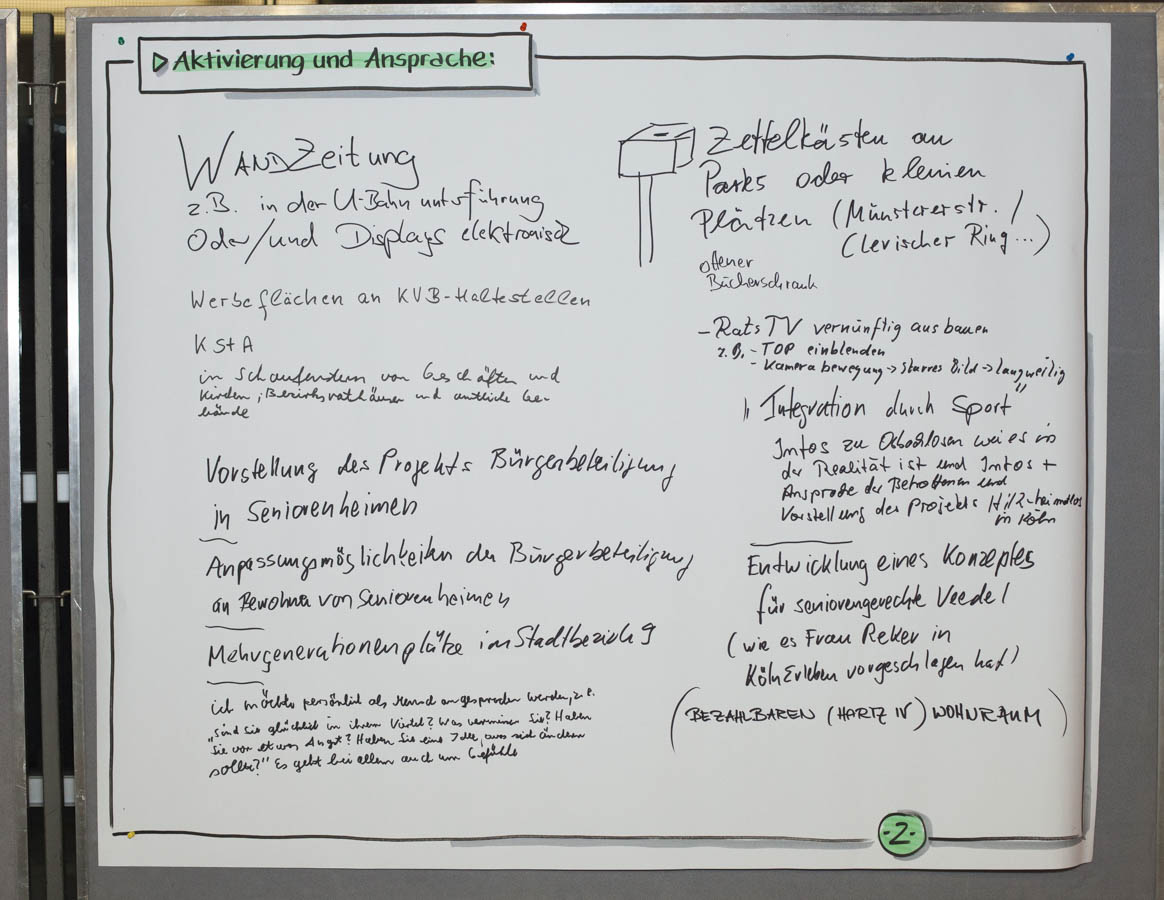 Aktivierung und Ansprache:
WANDZeitung
z.B. in der U-Bahn unterführung
Oder/und Displays elektronisch
Werbeflächen an KVB-Haltestellen
KStA
in Schaufenstern von Geschäften und
Kirchen, Bezirksrathäuser und amtliche Ge-
bäude
Vorstellung des Projekts Bürgerbeteiligung
in Seniorenheimen
Anpassungsmöglichkeiten der Bürgerbeteiligung
an Bewohner von Seniorenheimen
Mehrgenerationenplätze im Stadtbezirk 9
ich möchte persönlich als Mensch angesprochen werden, z.B.
„Sind Sie glücklich in ihrem Viertel? Was vermissen Sie? Haben
Sie vor etwas Angst? Haben Sie eine Idee, was sich ändern
sollte?" Es geht bei allem auch um Gefühle
Zettelkästen an
Parks oder kleinen
Plätzen (Münstererstr. /
Clevischer Ring...)
offener
Bücherschrank
- Rats TV vernünftig ausbauen
z.B. - TOP einblenden
- Kamerabewegung -> starres Bild -> langweilig
"Integration durch Sport"
Infos zu Obdachlosen wie es in
der Realität ist und Infos +
Ansprache der Betroffenen und
Vorstellung des Projekts
in Köln
Entwicklung eines Konzeptes
für seniorengerechte Veedel
(wie es Frau Reker in
KölnErleben vorgeschlagen hat)
(BEZAHLBAREN (HARTZ IV) WOHNRAUM)
-2-